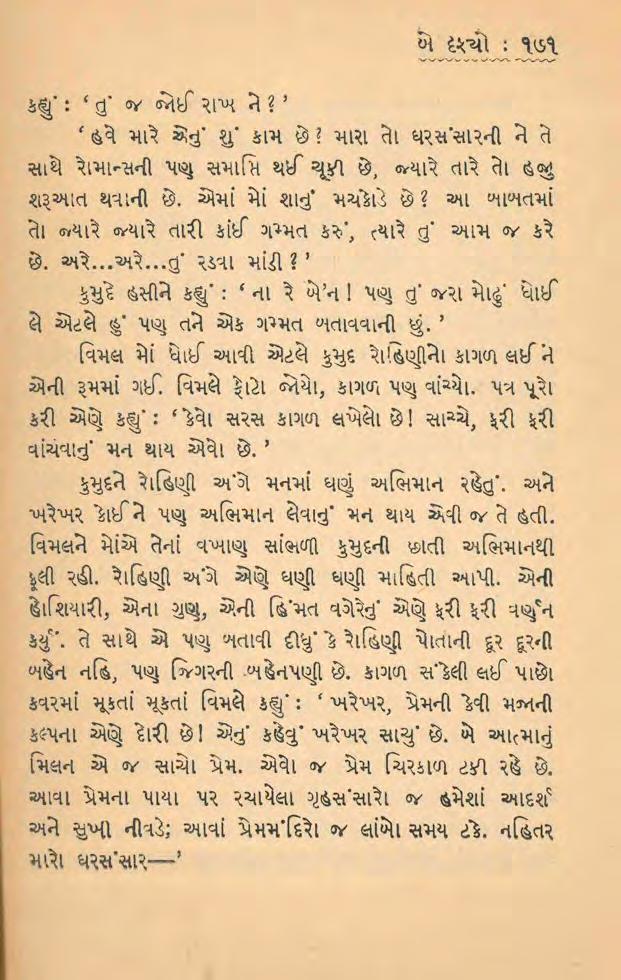 બે દૃશ્યો : ૧૭૧
કહ્યું : ‘ તું જ જોઈ રાખ ને ? ’
‘ હવે મારે એનું શું કામ છે ? મારા તો ઘરસંસારની ને તે
સાથે રોમાન્સની પણ સમાપ્તિ થઈ ચૂકી છે, જ્યારે તારે તો હજુ
શરૂઆત થવાની છે. એમાં મોં શાનું મચકોડે છે ? આ બાબતમાં
તો જ્યારે જ્યારે તારી કાંઈ ગમ્મત કરું, ત્યારે તું આમ જ કરે
છે. અરે...અરે...તું રડવા માંડી ? ’
કુમુદે હસીને કહ્યું : ‘ ના રે બે’ન ! પણ તું જરા મોઢું ધોઈ
લે એટલે હું પણ તને એક ગમ્મત બતાવવાની છું. ’
વિમલ મોં ધોઈ આવી એટલે કુમુદ રોહિણીનો કાગળ લઈ ને
એની રૂમમાં ગઈ. વિમલે ફોટો જોયો, કાગળ પણ વાંચ્યો. પત્ર પૂરો
કરી એણે કહ્યું : ‘ કેવો સરસ કાગળ લખેલો છે ! સાચ્ચે, ફરી ફરી
વાંચવાનું મન થાય એવો છે. ’
કુમુદને રોહિણી અંગે મનમાં ઘણું અભિમાન રહેતું. અને
ખરેખર કોઈને પણ અભિમાન લેવાનું મન થાય એવી જ તે હતી.
વિમલને મોંએ તેનાં વખાણ સાંભળી કુમુદની છાતી અભિમાનથી
ફૂલી રહી. રોહિણી અંગે એણે ઘણી ઘણી માહિતી આપી. એની
હોશિયારી, એના ગુણ, એની હિંમત વગેરેનું એણે ફરી ફરી વર્ણન
કર્યું. તે સાથે એ પણ બતાવી દીધું કે રોહિણી પોતાની દૂર દૂરની
બહેન નહિ, પણ જિગરની બહેનપણી છે. કાગળ સંકેલી લઈ પાછો
કવરમાં મૂકતાં મૂકતાં વિમલે કહ્યું : ‘ ખરેખર, પ્રેમની કેવી મજાની
કલ્પના એણે દોરી છે ! એનું કહેવું ખરેખર સાચું છે. બે આત્માનું
મિલન એ જ સાચો પ્રેમ. એવો જ પ્રેમ ચિરકાળ ટકી રહે છે.
આવા પ્રેમના પાયા પર રચાયેલા ગૃહસંસારો જ હમેશાં આદર્શ
અને સુખી નીવડે; આવાં પ્રેમમંદિરો જ લાંબો સમય ટકે. નહિતર
મારો ઘરસંસાર—’